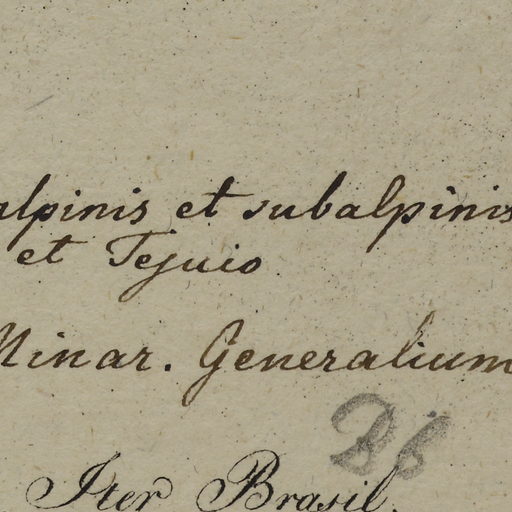 alpinis et subalpinis
et Tejuio
Minar. Generalium
Bb
Iter Brasil.